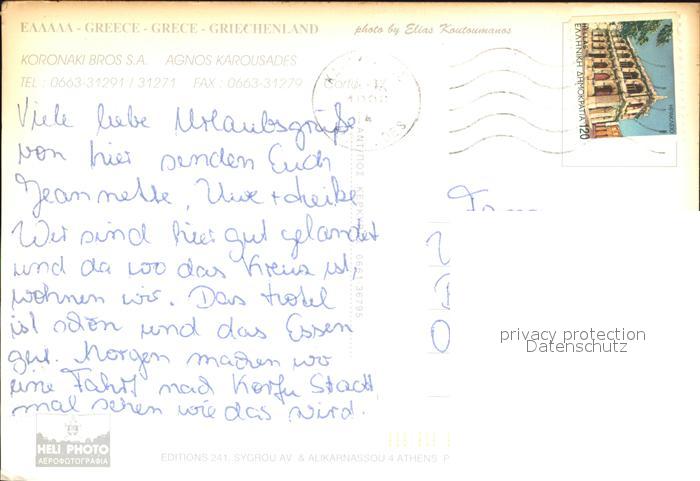 ΕΛΛΑΛΑ - GREECE - GRECE - GRIECHENLAND
photo by Elias Koutoumanos
KORONAKI BROS S.A. AGNOS KAROUSADES
TEL : 0663-31291 / 31271 FAX : 0663-31279 Corfu
ΕΛΛΗΝΙΚΗ ΔΗΜΟΚΡΑΤΙΑ 120
Viele liebe Urlaubsgrüße
von hier senden Euch
Jeannette, Uwe +
Wir sind hier gut gelandet
und da wo das Kreuz ist,
wohnen wir. Das Hotel
ist schön und das Essen
gut. Morgen machen wir
eine Fahrt nach Korfu Stadt,
mal sehen wie das wird.
0661 36795
privacy protection
Datenschutz
HELI PHOTO
ΑΕΡΟΦΩΤΟΓΡΑΦΙΑ
EDITIONS 241. SYGROU AV & ALIKARNASSOU 4 ATHENS P